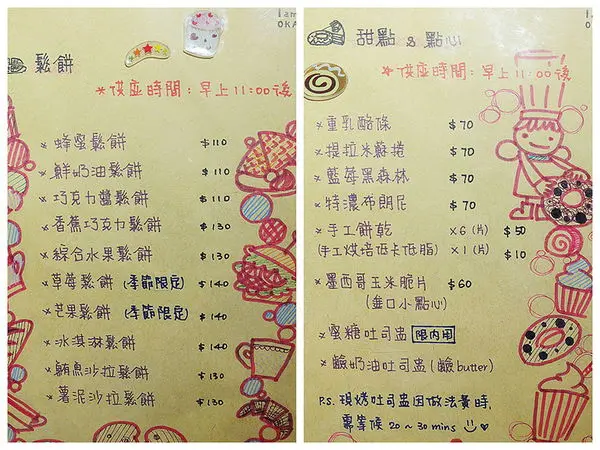 I am
OKA
鬆餅
*供應時間：早上11:00後
* 蜂蜜鬆餅 $110
* 鮮奶油鬆餅 $110
* 巧克力醬鬆餅 $110
* 香蕉巧克力鬆餅 $130
* 綜合水果鬆餅 $130
* 草莓鬆餅 (季節限定) $140
* 芒果鬆餅 (季節限定) $140
* 冰淇淋鬆餅 $140
* 鮪魚沙拉鬆餅 $130
* 薯泥沙拉鬆餅 $130
甜點 & 點心
*供應時間：早上11:00後
* 重乳酪條 $70
* 提拉米蘇捲 $70
* 藍莓黑森林 $70
* 特濃布朗尼 $70
* 手工餅乾 x6 (片) $50
(手工烘培低卡低脂) x1 (片) $10
* 墨西哥玉米脆片 $60
(鹹口小點心)
* 蜜糖吐司盅 限內用
* 鹹奶油吐司盅 (鹹butter)
P.S. 現烤吐司盅因做法費時,
需等候 20 ~ 30 mins